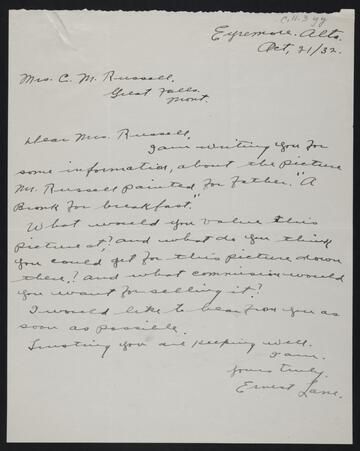 C.11.399
Eyremore. Alta.
Oct, 21/32.
Mrs. C. M. Russell.
Great Falls.
Mont.
Dear Mrs. Russell,
I am writing you for
some information, about the picture
Mr. Russell painted for Father. "A
Bronk for breakfast."
What would you value this
picture at? and what do you think
you could get for this picture down
there? and what commision would
you want for selling it?
I would like to hear from you as
soon as possible.
Trusting you are keeping well.
I am.
Yours truly.
Ernest Lane.